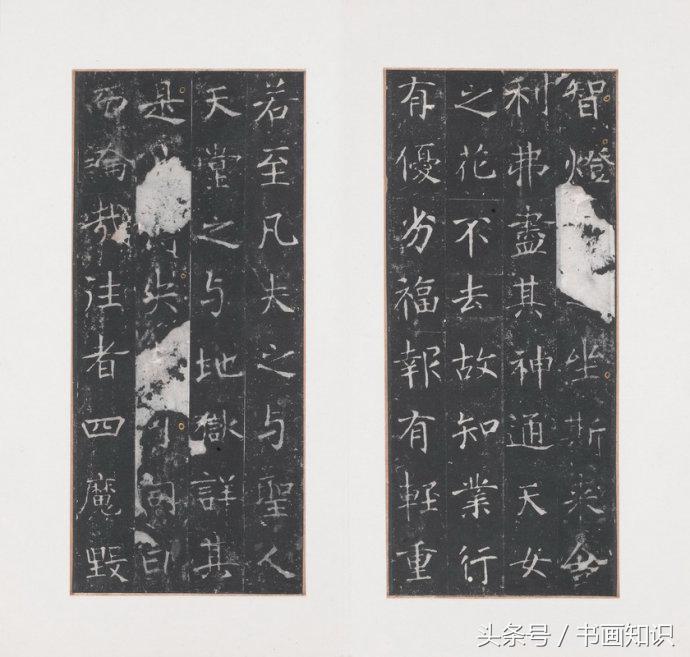 智燈坐斯來舍
利弗盡其神通天女
之花不去故知業行
有優劣福報有輕重
若至凡夫之与聖人
天堂之与地獄詳其
是失可同日
而論哉往者四魔毀
头条号 / 书画知识